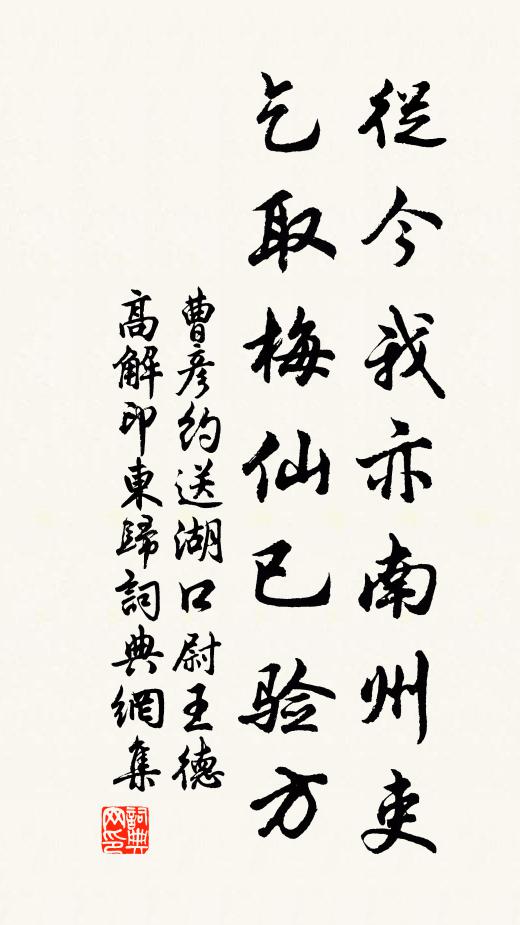 從今我亦南州吏
乞取梅仙已验方
曹彦约送湖口尉王德
高解印東歸詞典網集
詞典
网印